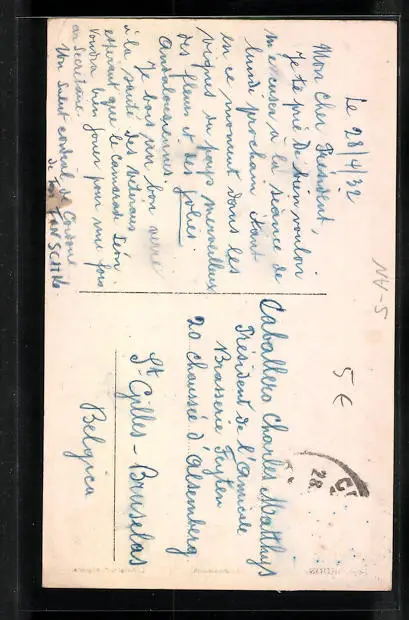 Le 28/4/32
Mon cher Président,
Je te prie de bien vouloir
m'excuser à la séance de
lundi prochain étant
en ce moment dans les
vignes du pays merveilleux
des fleurs et des jolies
Andalousiennes.
Je bois un bon verre
à la santé des
espérant que le camarade Léon
voudra bien jouer pour une fois
au secrétaire.
Un salut cordial de Cordoue
de ton
NV-5
5 €
Caballero Charles Matthys
Président de l'Amicale
Brasserie Feyten
20 chaussée d'Alsemberg
St Gilles - Bruselas
Belgica
28